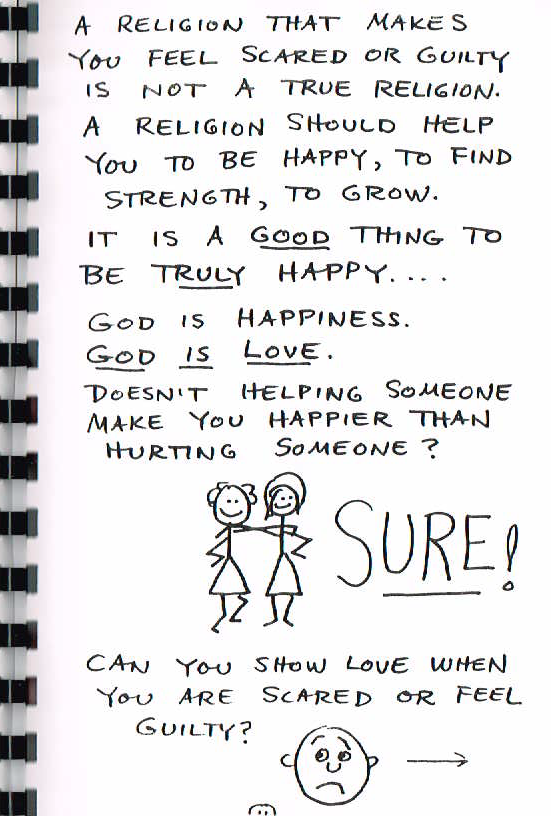 A RELIGION THAT MAKES
YOU FEEL SCARED OR GUILTY
IS NOT A TRUE RELIGION.
A RELIGION SHOULD HELP
YOU TO BE HAPPY, TO FIND
STRENGTH, TO GROW.
IT IS A GOOD THING TO
BE TRULY HAPPY....
GOD IS HAPPINESS.
GOD IS LOVE.
DOESN'T HELPING SOMEONE
MAKE YOU HAPPIER THAN
HURTING SOMEONE?
SURE!
CAN YOU SHOW LOVE WHEN
YOU ARE SCARED OR FEEL
GUILTY?